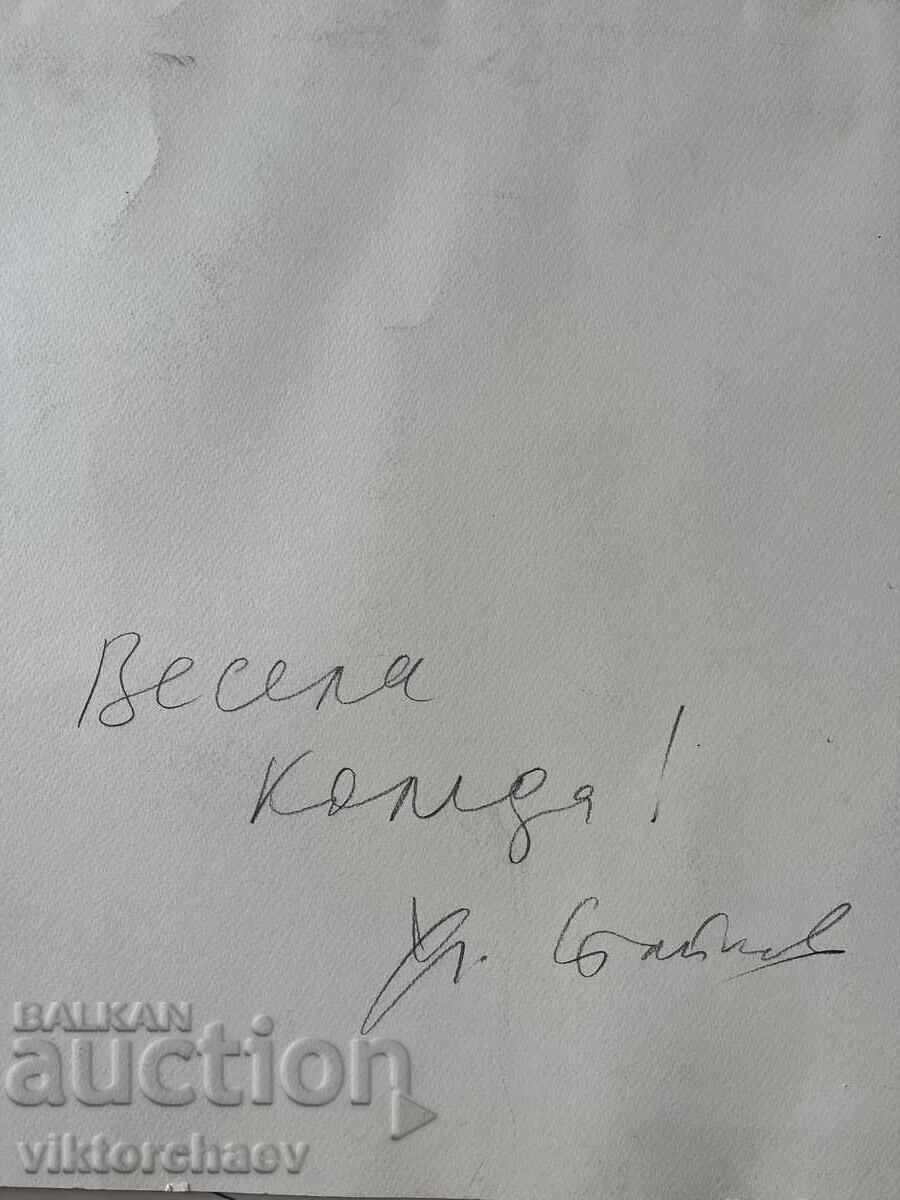 Весела
Коледа!
BALKAN
auction
viktorchaev